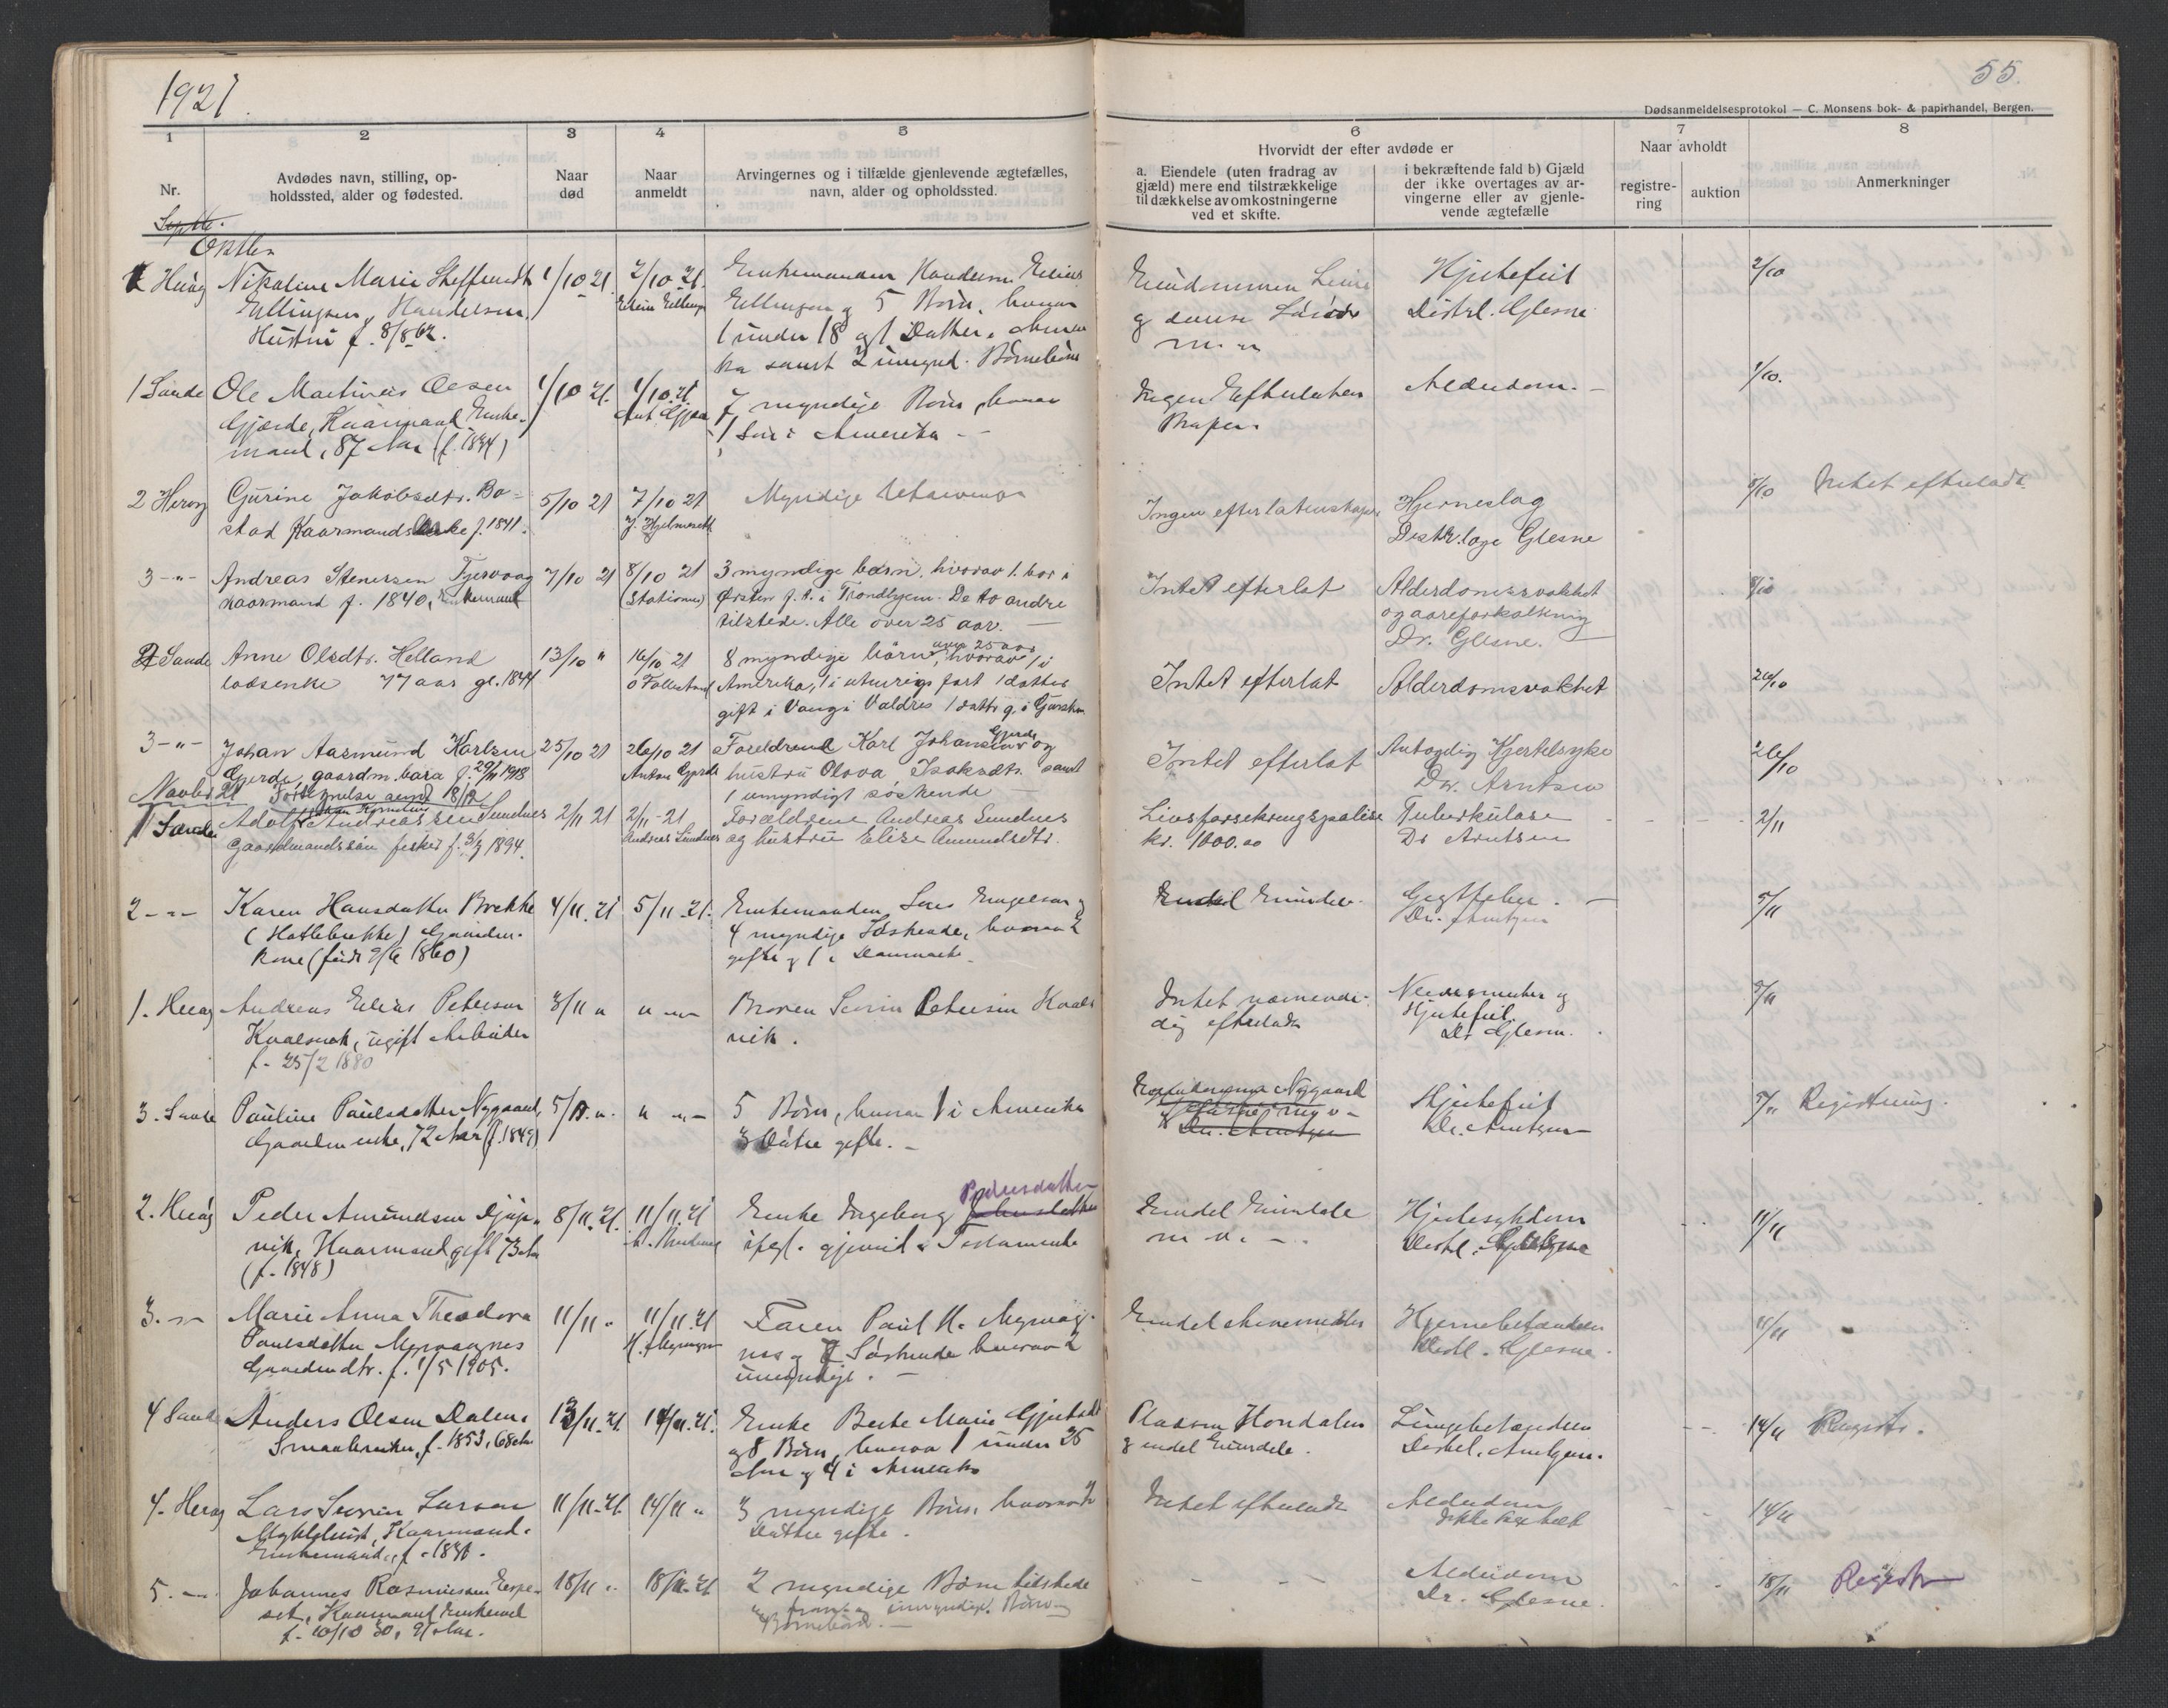 1921.
55.
Dødsanmeldelsesprotokol — C. Monsens bok- & papirhandel, Bergen.
1
2
3
4
5
6
7
8
Nr.
Avdødes navn, stilling, op-
holdssted, alder og fødested.
Naar
død
Naar
anmeldt
Arvingernes og i tilfælde gjenlevende ægtefælles,
navn, alder og opholdssted.
Hvorvidt der efter avdøde er
a. Eiendele (uten fradrag av
gjæld) mere end tilstrækkelige
til dækkelse av omkostningerne
ved et skifte.
i bekræftende fald b) Gjæld
der ikke overtages av ar-
vingerne eller av gjenle-
vende ægtefælle
Naar avholdt
registre-
ring
auktion
Anmerkninger
Septbr.
Oktbr
Nikoline Marie Steffensdtr
Ellingsen, Handelsm.
Hustru f. 8/8 62.
1/10 21
2/10 21.
Enkemanden Handelsm. Elias
Ellingsen og 5 Børn, hvorav
1 under 18 og 1 Datter i Ameri
ka samt 2 umynd. Børnebørn
Hjertefeil
Distrl. Glesne
2/10
1 Sande
Ole Martinus Olsen
Gjærde, Kaarmand, Enke-
mand, 87 Aar (f. 1834)
1/10 21.
1/10 21
7 myndige Børn, hvorav
1 Søn i Amerika -
Ingen Efterladen
skaper.
Alderdom. -
1/10.
2 Herøy
Gurine Jakobsdtr. Bo-
stad Kaarmandsenke f. 1841.
5/10 21
7/10 21
J. Hjelmeseth
Myndige Utarvinger
Ingen efterlatenskaper
Hjerneslag
Distr.læge Glesne
8/10
Intet efterladt
3 -"-
Andreas Stenersen Tjervaag
kaarmand f. 1840, Enkemand
7/10 21
8/10 21
3 myndige børn, hvorav 1. bor i
Ørsten p.t. i Trondhjem. De to andre
tilstede. Alle over 25 aar.
Intet efterlat
Alderdomssvakhet
og aareforkalkning
Dr. Glesne.
8/10
2 Sande
Anne Olsdtr. Helland
lodsenke 77 aar gl. 1844
13/10 "
16/10 21
8 myndige børn, over 25 aar, hvorav 1 i
Amerika, 1 i utenrigs fart 1 datter
gift i Vang i Valdres 1 dattr g. i Gursken
Intet efterlat
Alderdomssvakhet
3 -"-
Johan Aasmund Karlsen
Gjerde, gaardm. barn f. 29/11 1918
25/10 21
26/10 21
Anton Gjerde
Foreldrene Karl Johansen Gjerde og
hustru Olova Isaksdtr. samt
1 umyndigt søskende
Intet efterlat
Dr. Arntsen
26/10
Novbr 21
1 Sande
Adolf Andreassen Sundnes
gaardmandssøn fisker f. 3/9 1894.
2/11 21
2/11 - 21
Andreas Sundnes
Forældrene Andreas Sundnes
og hustru Elise Amundsdtr.
Livsforsekringspolise
kr. 1000.00
Tuberkulose
Dr Arntsen
2/11
2 -"-
Karen Hansdatter Brekke
(Hatlebrekke) Gaardm.
kone (født 9/6 1860)
4/11. 21
5/11 - 21.
Enkemanden Lars Engelsen og
4 myndige Søskende, hvorav 2
gifte og 1 i Danmark
Gigtfeber.
Dr. Arntzen
5/11
1. Herøy
Andreas Elias Petersen
Kvalsvik, ugift Arbeider
f. 25/2 1880
3/11 "
" -"-
Broren Severin Petersen Kvals
vik.
Intet nævnevær-
dig efterladt
Hjertefeil.
Dr Glesne.
5/11
3. Sande
Pauline Paulsdatter Nygaard,
Gaardm enke, 72 Aar (f. 1849)
5/11. ".
" -"-
5 Børn, hvorav 1 i Amerika
3 Døtre gifte. -
Hjertefeil
Dr. Arntzen
5/11
Registrering.
2. Herøy
Peder Amundsen Djup-
vik, Kaarmand, gift 73 Aar
(f. 1848)
8/11. 21.
11/11. 21
Pedersdatter
Enke Ingeborg
ifgl. gjensid. Testamente
Endel Eiendele
m. v. -
Hjertesykdom
11/11
3. -"-
Marie Anna Theodora
Paulsdatter Myrvaagnes
Gaardm dtr. f. 1/5 1905.
11/11 "
11/11 21
Faren Paul H. Myrvaag-
nes og 7 Søskende hvorav 2
umyndige. -
Hjernebetændelse
Distl. Glesne.
11/11
4 Sande
Anders Olsen Dalen,
Smaabruker, f. 1853, 68 Aar
13/11. 21.
14/11. 21.
Enke Berte Marie Gjertsdtr
og 8 Børn, hvorav 1 under 25
Aar og 4 i Amerika
Pladsen Hondalen
og endel Eiendele.
Lungebetændelse
Distrl. Arntzen.
14/11
Registr.
4. Herøy
Lars Severin Larsen
Myklebust, Kaarmand.
Enkemand, f. 1831.
11/11. 21.
14/11 "
3 myndige Børn, hvorav 2
Døttre gifte.
Intet efterladt
Alderdom
14/11
5. -"-
Johannes Rasmussen Espe-
set, Kaarmand Enkemd
18/11 ".
18/11. 21
2 myndige Børn tilstede
Børnebørn. -
- - -
Alderdom
Dr. Glesne.
18/11
Registr